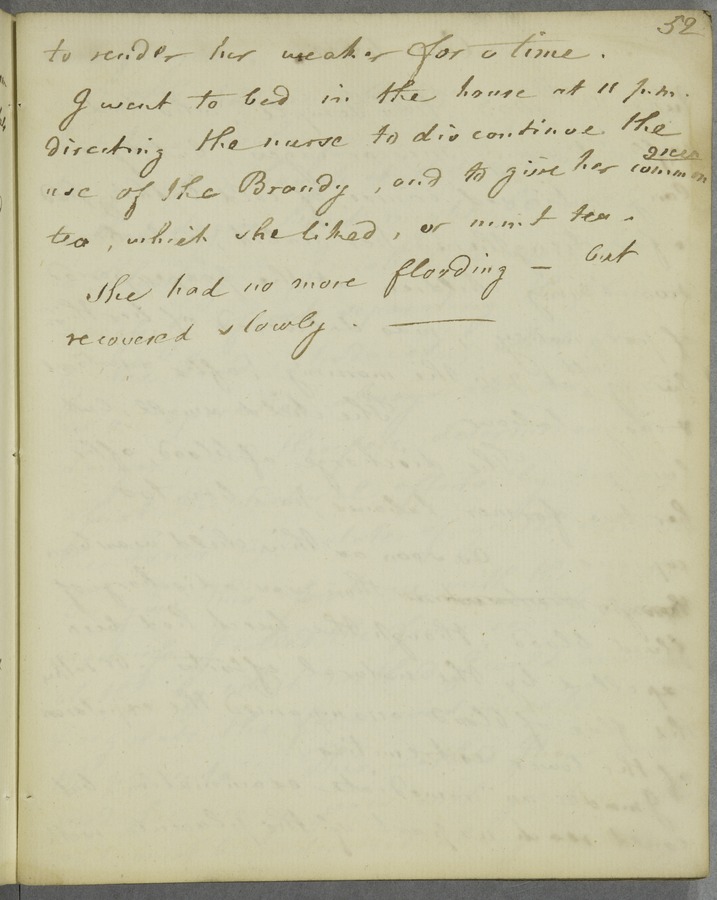 52
to render her weaker for a time.
I went to bed in the house at 11 p.m.
directing the nurse to discontinue the
use of the Brandy, and to give her common
green
tea, which she liked, or mint tea.
She had no more flooding — but
recovered slowly. —